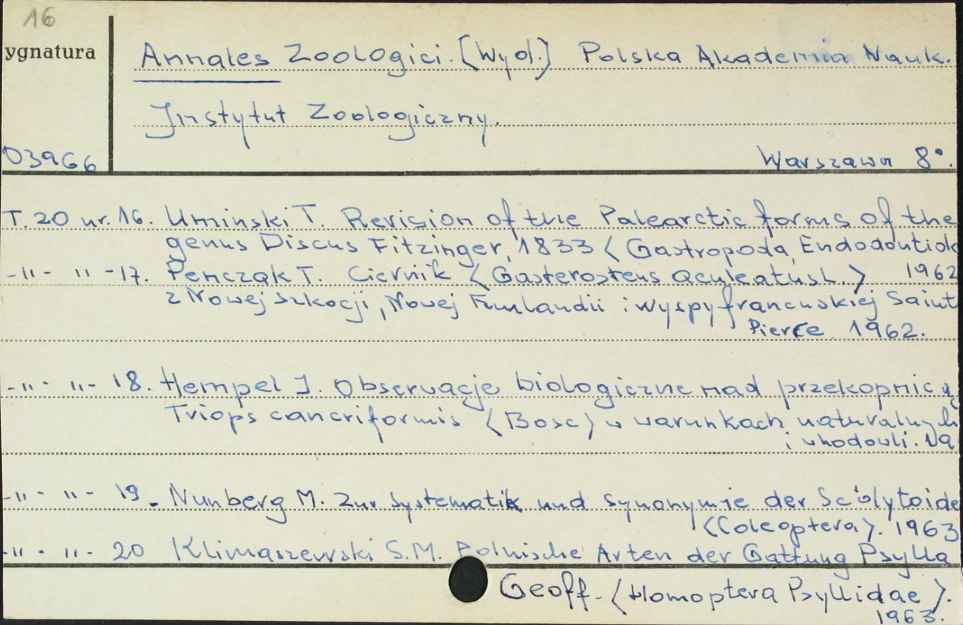 16
ygnatura
Annales Zoologici. [Wyd.] Polska Akademia Nauk.
Instytut Zoologiczny.
03966
Warszawa 8°.
T. 20 nr. 16. Uminski T. Revision of the Palearctic forms of the
genus Discus Fitzinger, 1833 < Gastropoda, Endodontiok
1962
-"- "-17. Penczak T. Ciernik <Gasterosteus aculeatus L.>
z Nowej Szkocji, Nowej Funlandii i wyspy francuskiej Saint
Pierre 1962.
-"- "- 18. Hempel J. Obserwacje biologiczne nad przekopnicą
Triops cancriformis <Bosc> w warunkach naturalnych
i whodowli.
-"- "- 19. Nunberg M. Zur Systematik und Synonymie der Scolytoide
<Coleoptera>. 1963
-"- "- 20 Klimaszewski S.M. Polnische Arten der Gattung Psylla
Geoff. <Homoptera Psyllidae>.
1963.